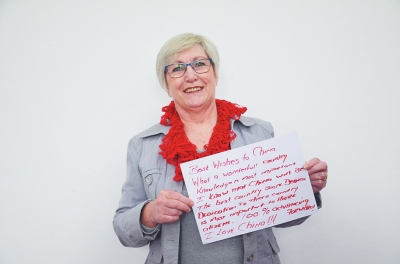 Best Wishes to China
What a wonderful country
Knowledge most important
I know that China will be
The best country
Dedication to there country
is most important to these
citizens. 100% achieving
I Love China!!!